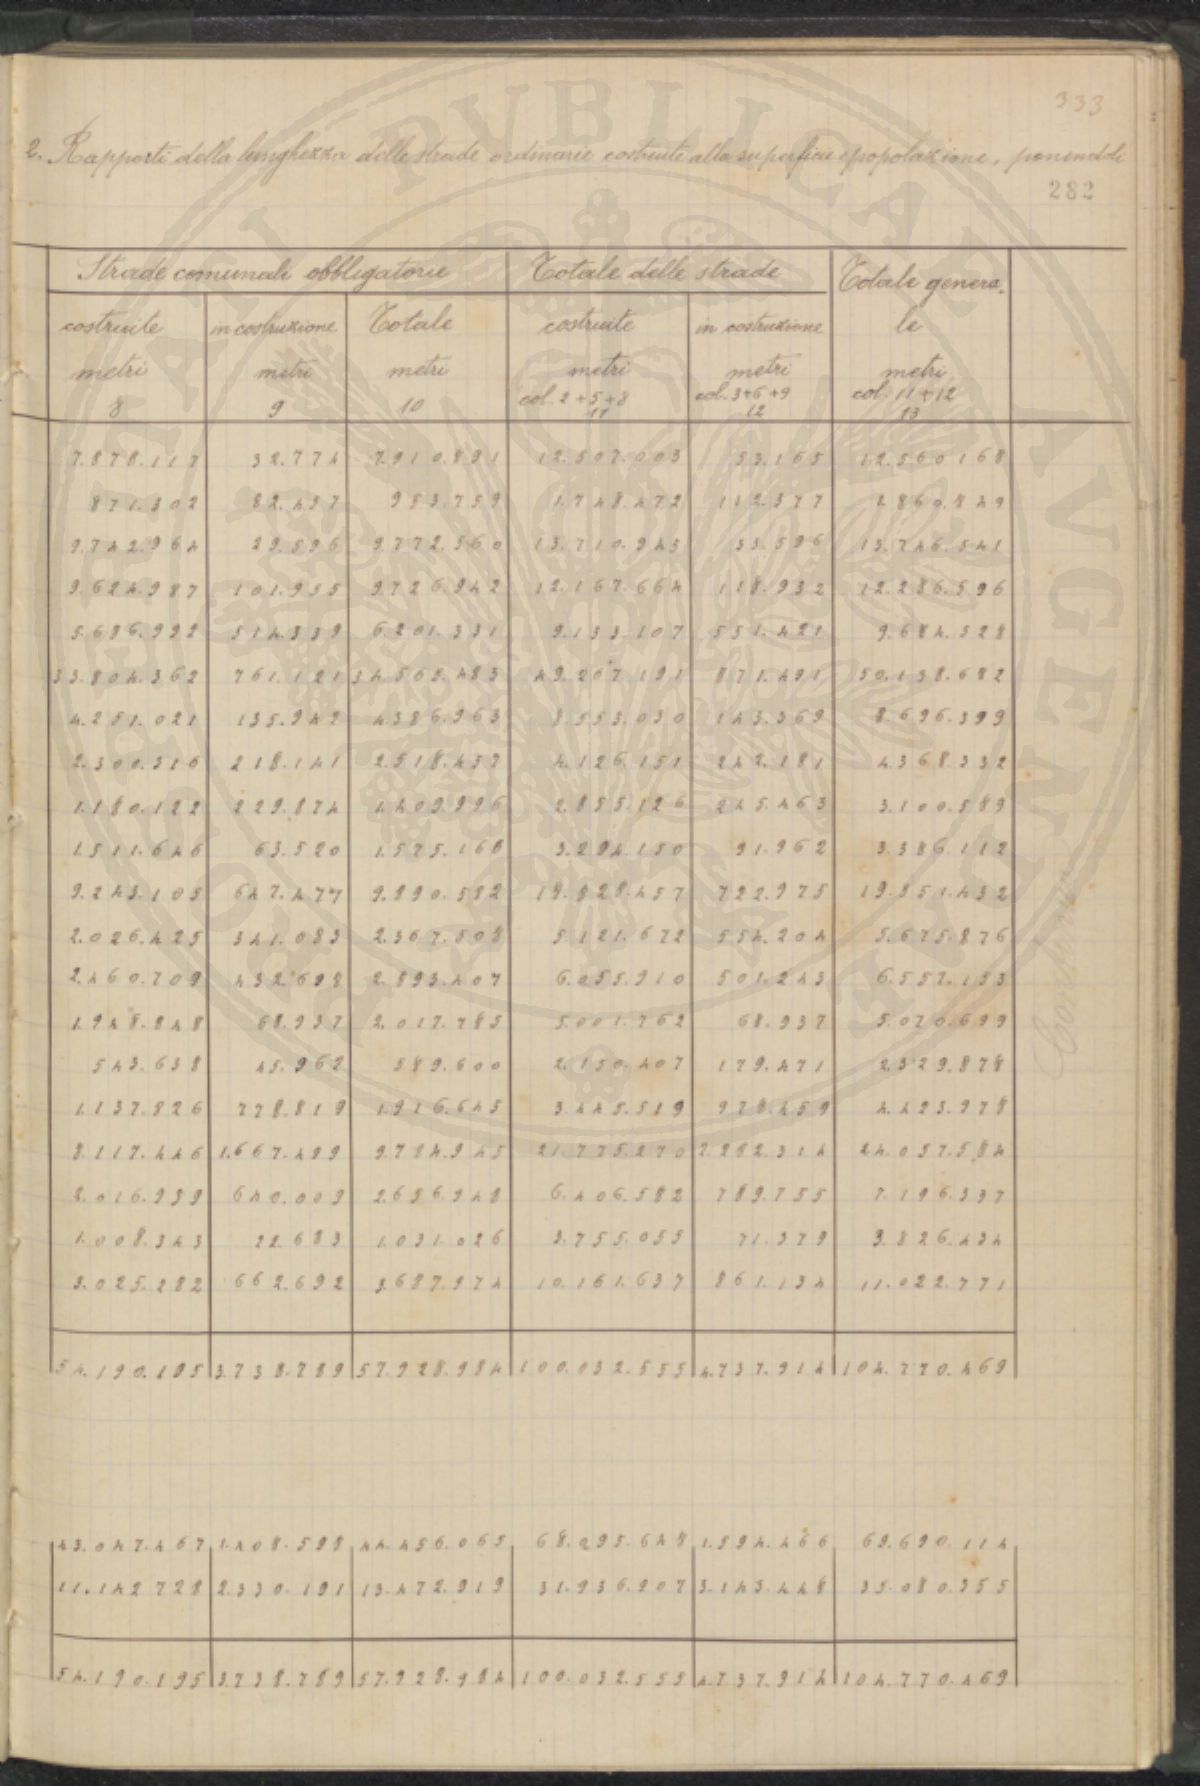 333
2. Rapporti della lunghezza delle strade ordinarie costruite alla superficie e popolazione, ponendoli
282
Strade comunali obbligatorie Totale delle strade Totale genera-
costruite in costruzione Totale costruite in costruzione le
metri metri metri metri metri metri
col. 2+5+8 col. 3+6+9 col. 11+12
8 9 10 11 12 13
7.878.117 32.774 7.910.891 12.507.003 53.165 12.560.168
871.302 82.457 953.759 1.748.472 112.377 1.860.849
9.742.964 29.596 9.772.560 13.710.945 35.596 13.746.541
9.624.987 101.955 9.726.942 12.167.664 118.932 12.286.596
5.686.992 514.339 6.201.331 9.133.107 551.421 9.684.528
33.804.362 761.121 34.565.483 49.267.191 871.491 50.138.682
4.251.021 135.942 4.386.963 8.553.030 143.369 8.696.399
2.300.316 218.141 2.518.457 4.126.151 242.181 4.368.332
1.180.122 229.874 1.409.996 2.855.126 245.463 3.100.589
1.511.646 63.520 1.575.166 3.294.150 91.962 3.386.112
9.243.105 647.477 9.890.582 19.828.457 722.975 19.551.432
2.026.425 341.083 2.367.508 5.121.672 554.204 5.675.876
2.460.709 432.698 2.893.407 6.055.910 501.243 6.557.153
1.948.848 68.937 2.017.785 5.001.762 68.937 5.070.699
543.638 45.962 589.600 2.150.407 179.471 2.329.878
1.137.826 778.819 1.916.645 3.445.519 978.459 4.423.978
8.117.446 1.667.499 9.784.945 21.775.270 2.282.314 24.057.584
2.016.939 640.009 2.656.948 6.406.582 789.755 7.196.337
1.008.343 22.683 1.031.026 3.755.055 71.379 3.826.434
3.025.282 662.692 3.687.974 10.161.637 861.134 11.022.771
54.190.195 3.738.789 57.928.984 100.032.555 4.737.914 104.770.469
43.047.467 1.408.598 44.456.065 68.095.648 1.594.466 69.690.114
11.142.728 2.330.191 13.472.919 31.936.907 3.143.448 35.080.355
54.190.195 3.738.789 57.928.984 100.032.555 4.737.914 104.770.469